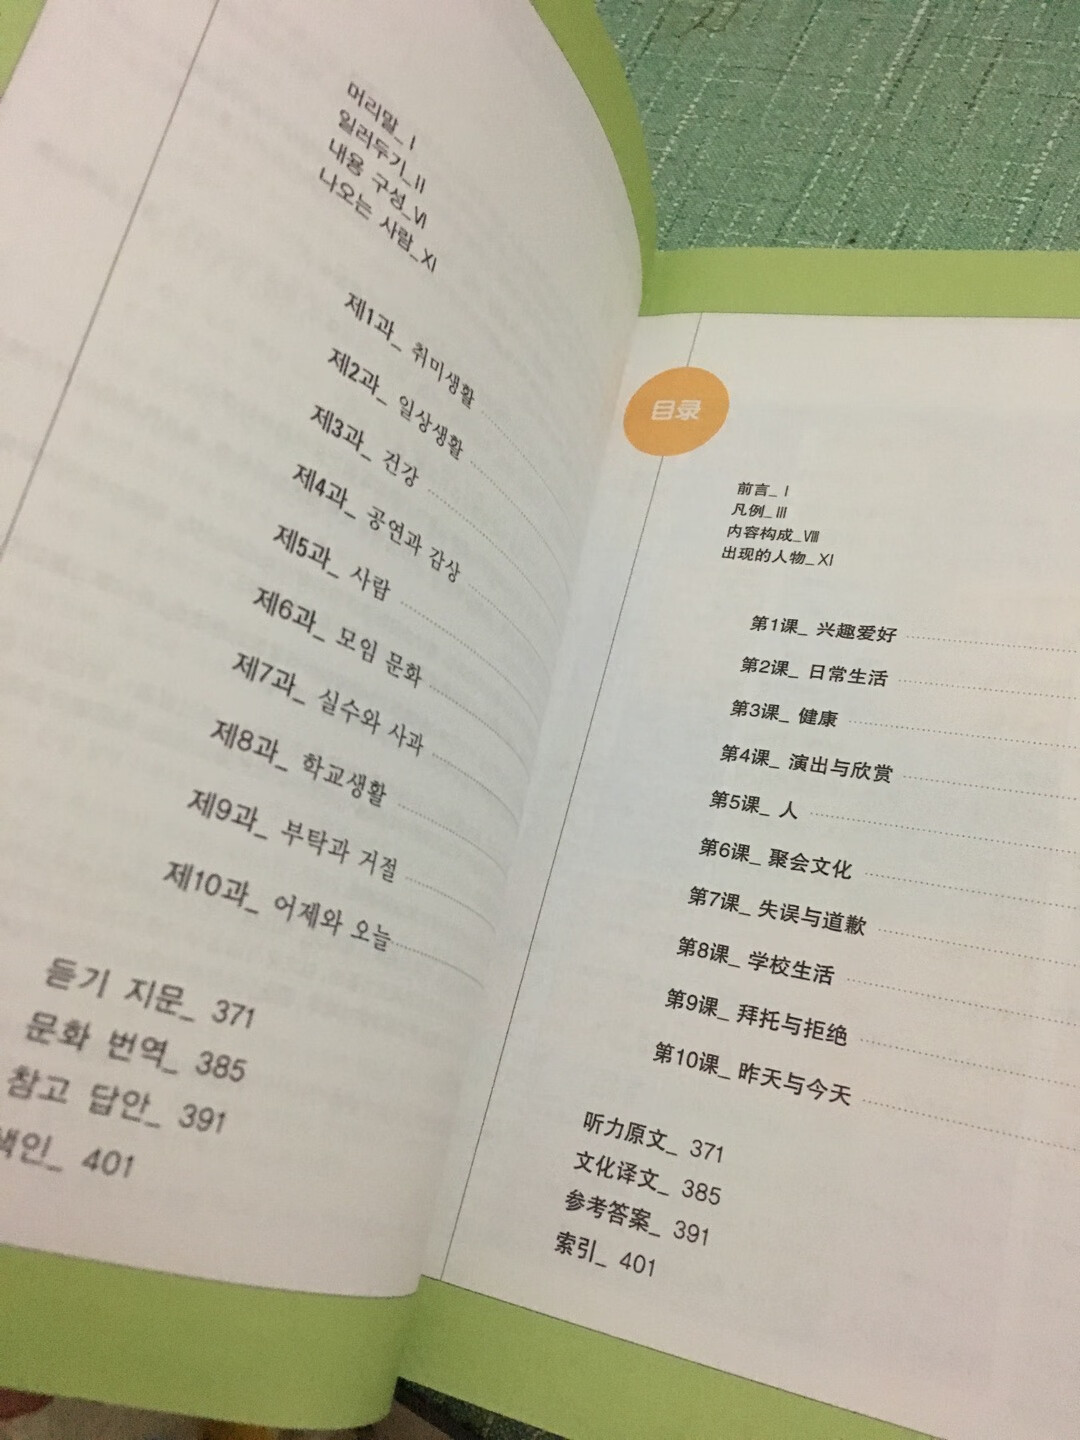 머리말_ I
일러두기_II
내용 구성_VI
나오는 사람_XI
제1과_ 취미생활
제2과_ 일상생활
제3과_ 건강
제4과_ 공연과 감상
제5과_ 사람
제6과_ 모임 문화
제7과_ 실수와 사과
제8과_ 학교생활
제9과_ 부탁과 거절
제10과_ 어제와 오늘
듣기 지문_ 371
문화 번역_ 385
참고 답안_ 391
색인_ 401
目录
前言_ I
凡例_ III
内容构成_VIII
出现的人物_ XI
第1课_ 兴趣爱好
第2课_ 日常生活
第3课_ 健康
第4课_ 演出与欣赏
第5课_ 人
第6课_ 聚会文化
第7课_ 失误与道歉
第8课_ 学校生活
第9课_ 拜托与拒绝
第10课_ 昨天与今天
听力原文_ 371
文化译文_ 385
参考答案_ 391
索引_ 401